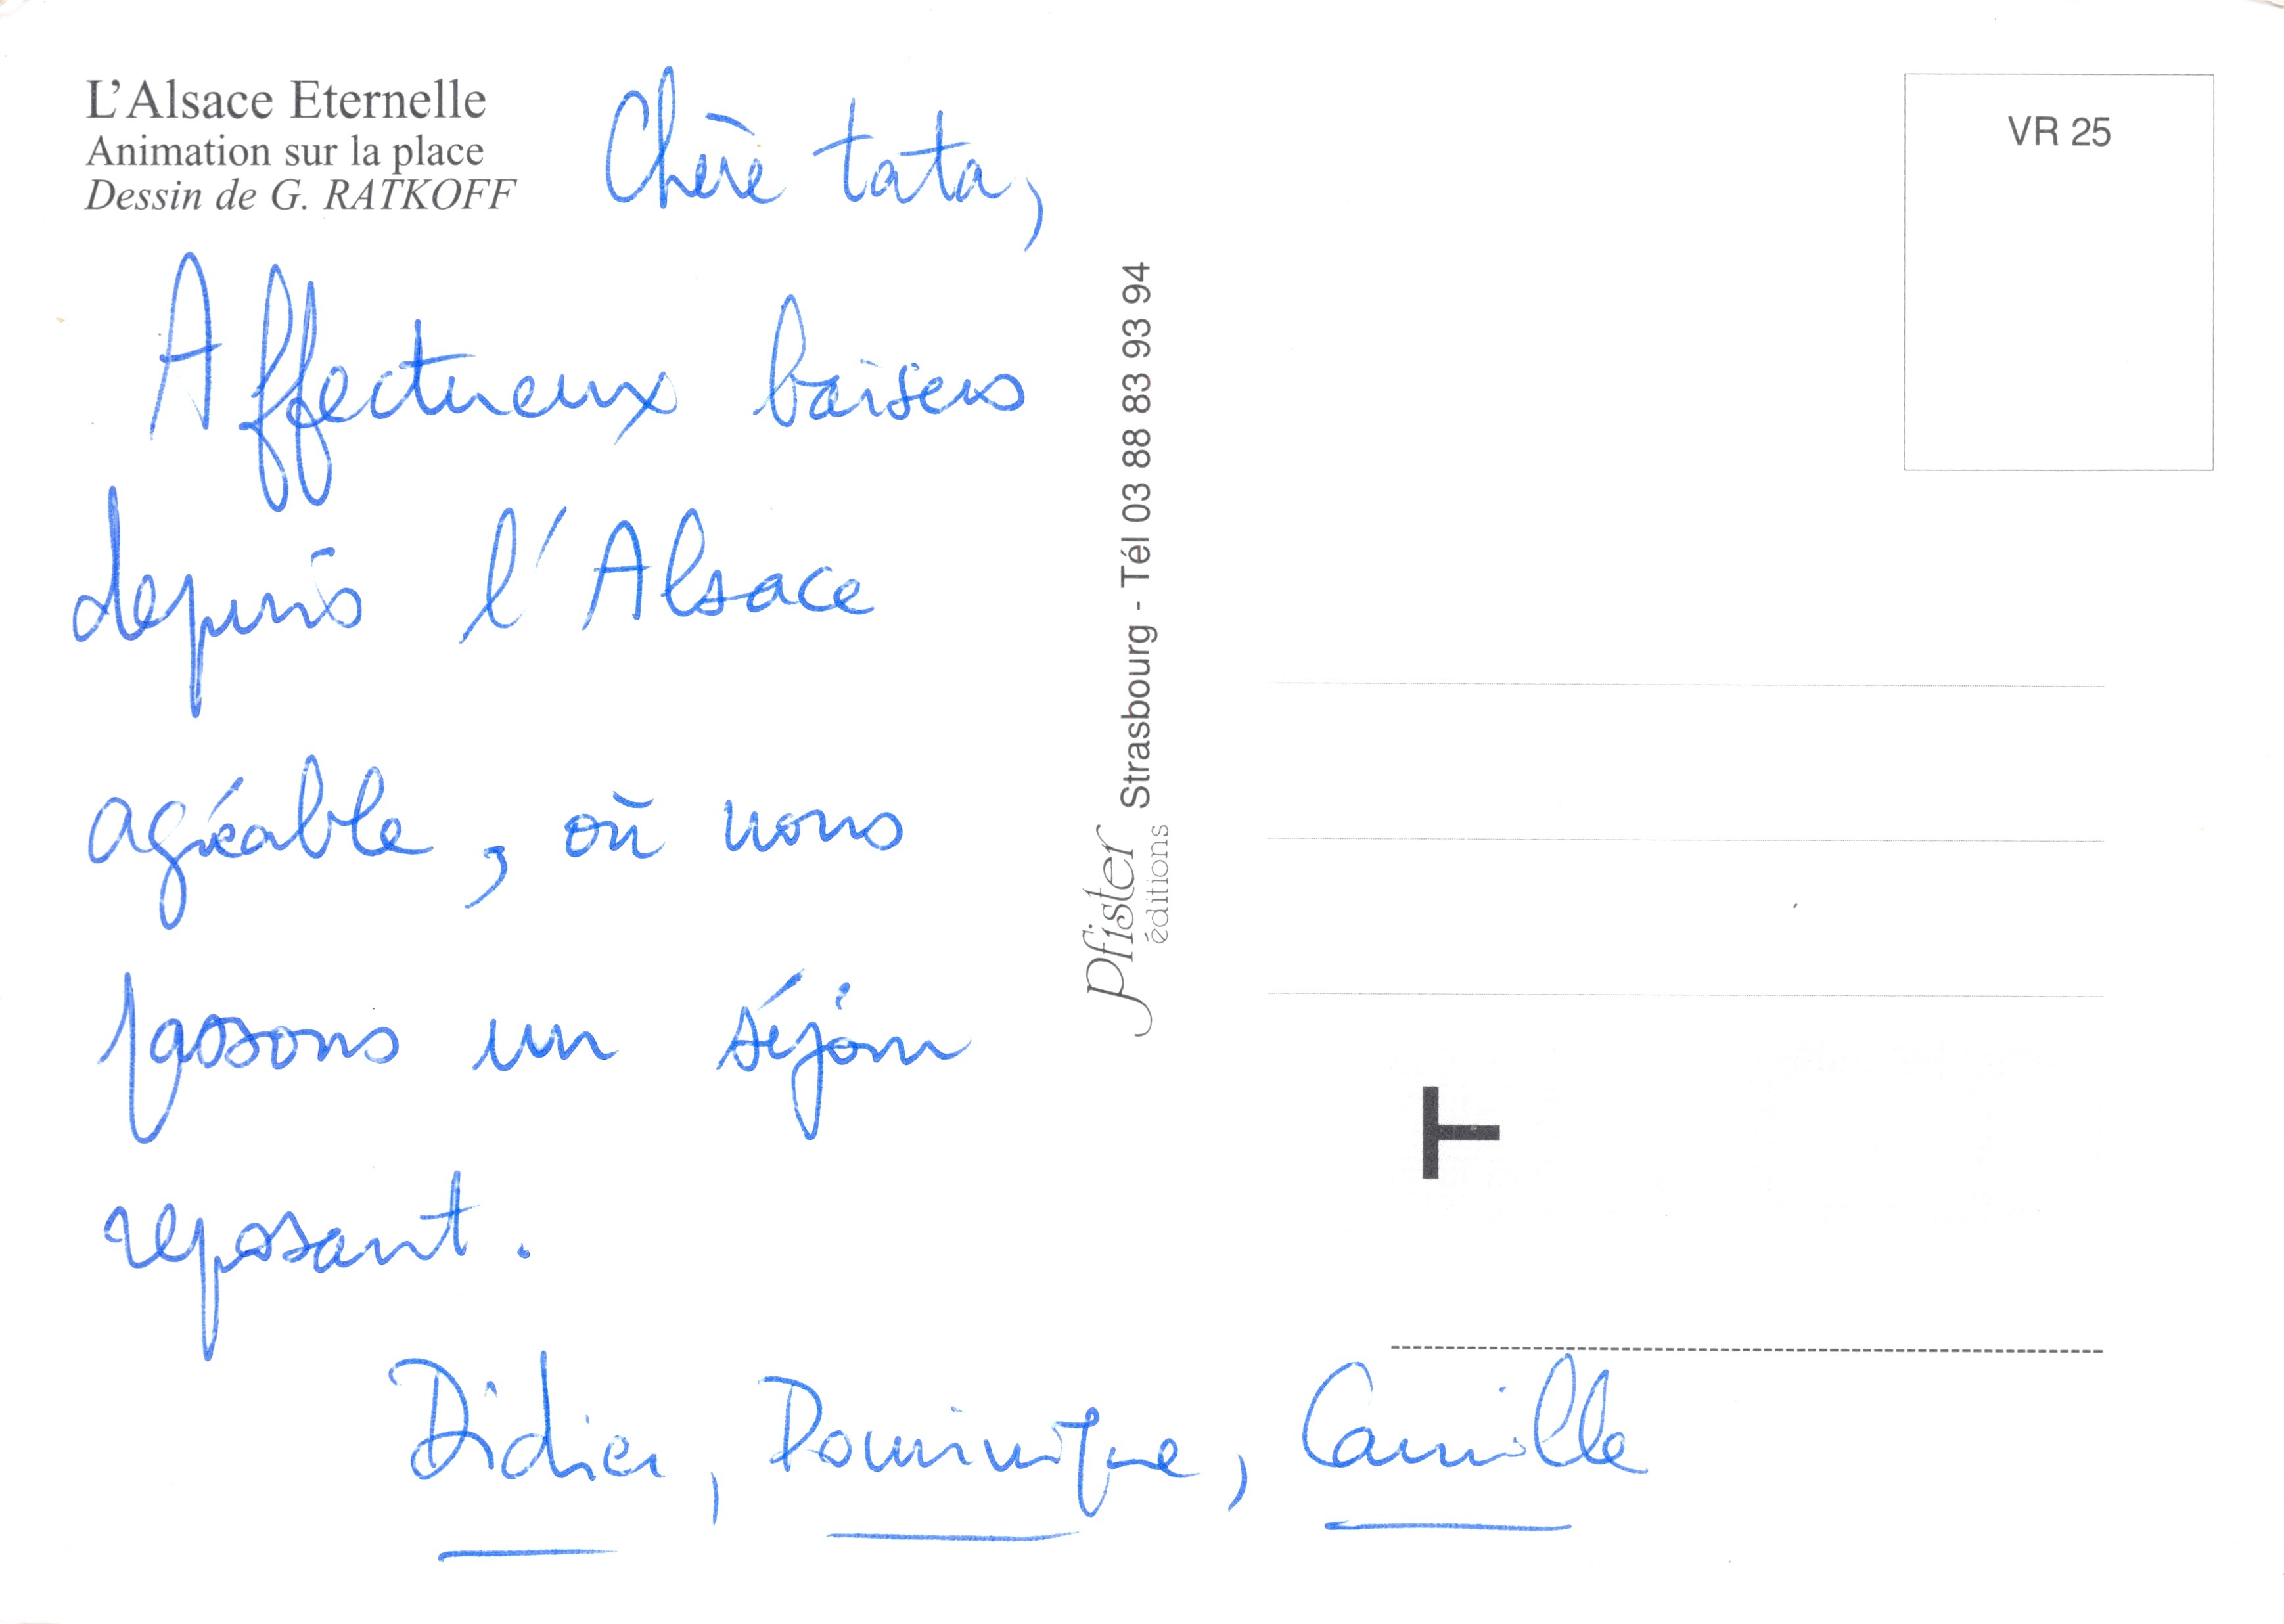 L'Alsace Eternelle
Animation sur la place
Dessin de G. RATKOFF
Chère tata,
Affectueux baisers
depuis l'Alsace
agréable, où nous
passons un séjour
reposant.
Didier, Dominique, Camille
Pfister éditions Strasbourg - Tél 03 88 83 93 94
VR 25
T